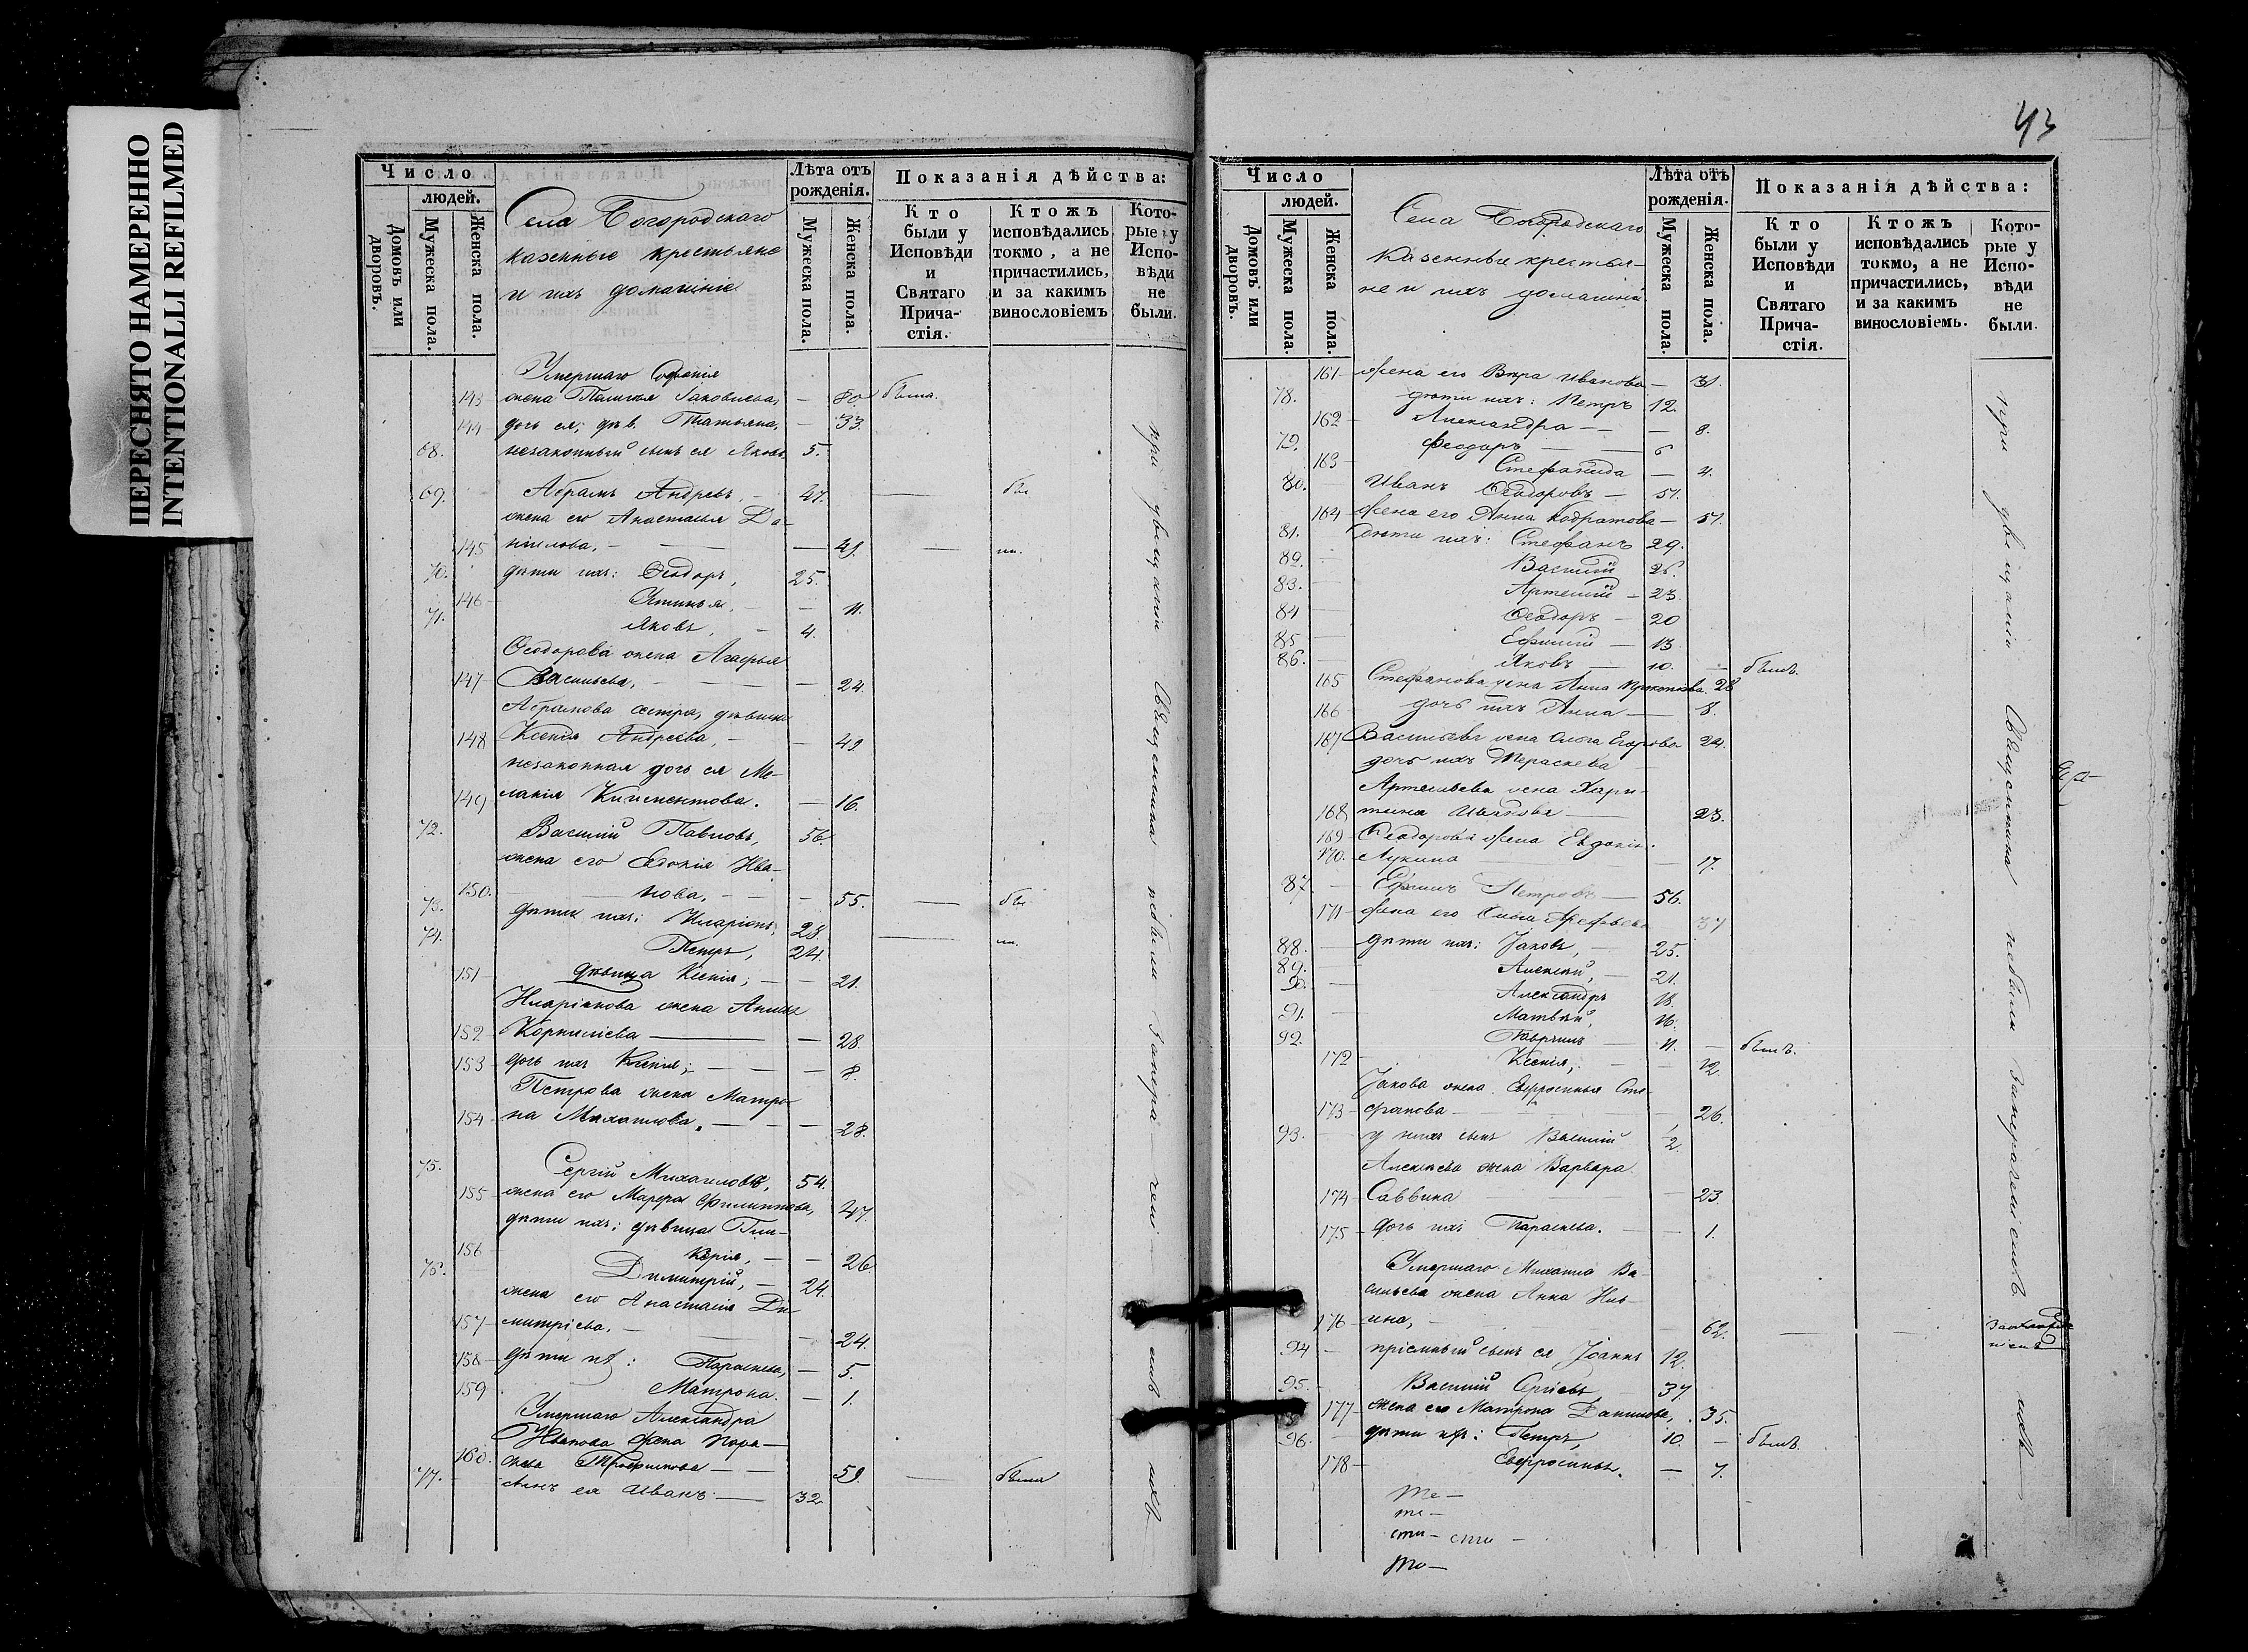 ПЕРЕСНЯТО НАМЕРЕННО
INTENTIONALLI REFILMED
Число
людей.
Домовъ или дворовъ.
Мужеска пола.
Женска пола.
Села Богородскаго
казенные крестьяне
и ихъ домашніе
Лѣта отъ рожденія.
Мужеска пола.
Женска пола.
Показанія дѣйства:
Кто были у Исповѣди и Святаго Причастія.
Ктожъ исповѣдались токмо, а не причастились, и за какимъ винословіемъ
Которые у Исповѣди не были.
Умершаго Софонія
143 жена Пелагія Іаковлева, — 80 была.
144 дочь ея, дѣв. Татьяна, — 33.
68. незаконный сынъ ея Яковъ 5.
69. Абрамъ Андревъ, — 47. — был
жена его Анастасья Да-
145 нилова. — — 49. —
70. дѣти ихъ: Ѳеодоръ, 25.
146 Устинья, — — 11.
71. Яковъ, — 4.
Ѳеодорова жена Агафья
147 Васильева, — — 24.
Абрамова сестра, дѣвица
148 Ксенія Андреева, — — 42
незаконная дочь ея Ме-
149 ланія Климентова. — 16.
72. Василій Павловъ, 56.
жена его Евдокія Ива-
150. нова, — — 55. — был
73. дѣти ихъ: Иларіонъ, 28.
74. Петръ, 24. —
151 дѣвица Ксенія; — — 21.
Иларіонова жена Анна
152 Корниліева — — 28.
153 дочь ихъ Ксенія; — — 8.
Петрова жена Матро-
154 на Михаилова. — — 28.
75. Сергій Михаиловъ, 54.
155 жена его Марфа Филиппова, 47.
дѣти ихъ: дѣвица Гли-
156 керія, — — 26
76. Димитрій, — 24.
жена его Анастасія Ди-
157 митріева. — — 24.
158 дѣти ихъ: Параскева, — 5.
159 Матрона. — 1.
Умершаго Александра
Иванова жена Пара-
160. скева Трофимова — — 59. — была
77. сынъ ея Иванъ — 32
при увѣщаніи Священника небыли
43
Число
людей.
Домовъ или дворовъ.
Мужеска пола.
Женска пола.
Села Богородскаго
казенныя крестья-
не и ихъ домашніи
Лѣта отъ рожденія.
Мужеска пола.
Женска пола.
Показанія дѣйства:
Кто были у Исповѣди и Святаго Причастія.
Ктожъ исповѣдались токмо, а не причастились, и за какимъ винословіемъ.
Которые у Исповѣди не были.
161 жена его Вѣра Иванова — 31.
78. дѣти ихъ: Петръ 12.
162 Александра — — 8.
79. Феодоръ — 6
163 Стефанида — 4.
80. Иванъ Ѳеодоровъ — 51.
164 жена его Анна Кодратова — 51.
81. Дѣти ихъ: Стефанъ 29.
82. Василій 26.
83. Артемій — 23
84 Ѳеодоръ — 20
85. Ефимій — 13
86. Яковъ — 10. — былъ.
165 Стефанова жена Анна Прокопіева 28
166 дочь ихъ Анна — 8.
167 Васильева жена Ольга Егорова 24.
дочь ихъ Пераскева —
Артемьева жена Хари-
168 тина — 23.
169 Ѳеодорова жена Евдокія
170. Лукина — 17.
87. Ефимъ Петровъ — 56.
171 жена его Арефьева 37
88. дѣти ихъ: Іаковъ, — 25.
89. Алексій, — 21.
90. Александръ 18.
91. Матвѣй, 16.
92. Гаврилъ — 11. — былъ.
172 Ксенія, — 12.
Іакова жена Ефросинья Сте-
173 фанова — 26.
93. у нихъ сынъ Василій 2.
Алексіева жена Варвара
174 Саввина — 23.
175 дочь ихъ Параскева. — — 1.
Умершаго Михаила Ва-
сильева жена Анна Иль-
176 ина, — 62. — —
94 пріемный сынъ ея Іоаннъ 12.
95. Василій Сергіевъ 37
177 жена его Матрона Данилова, 35.
96. дѣти ихъ: Петръ, 10. — былъ
178 Евфросинья. — 7.
те —
те —
сти — сти —
то —
при увѣщаніи Священника небыли